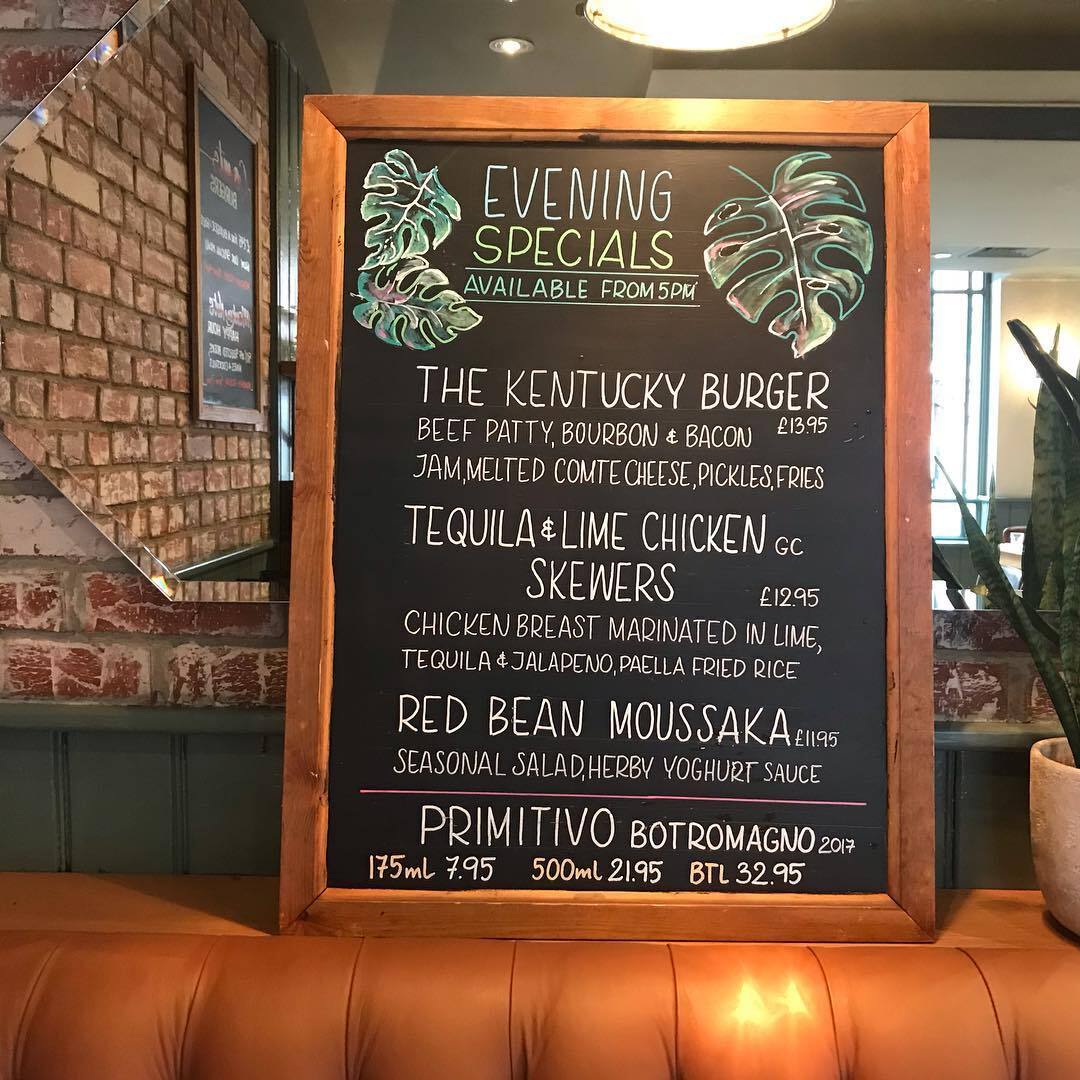 EVENING
SPECIALS
AVAILABLE FROM 5PM
THE KENTUCKY BURGER
£13.95
BEEF PATTY, BOURBON & BACON
JAM, MELTED COMTE CHEESE, PICKLES, FRIES
TEQUILA & LIME CHICKEN GC
SKEWERS £12.95
CHICKEN BREAST MARINATED IN LIME,
TEQUILA & JALAPENO, PAELLA FRIED RICE
RED BEAN MOUSSAKA £11.95
SEASONAL SALAD, HERBY YOGHURT SAUCE
PRIMITIVO BOTROMAGNO 2017
175ml 7.95 500ml 21.95 BTL 32.95
BURGERS
HAPPY HOUR